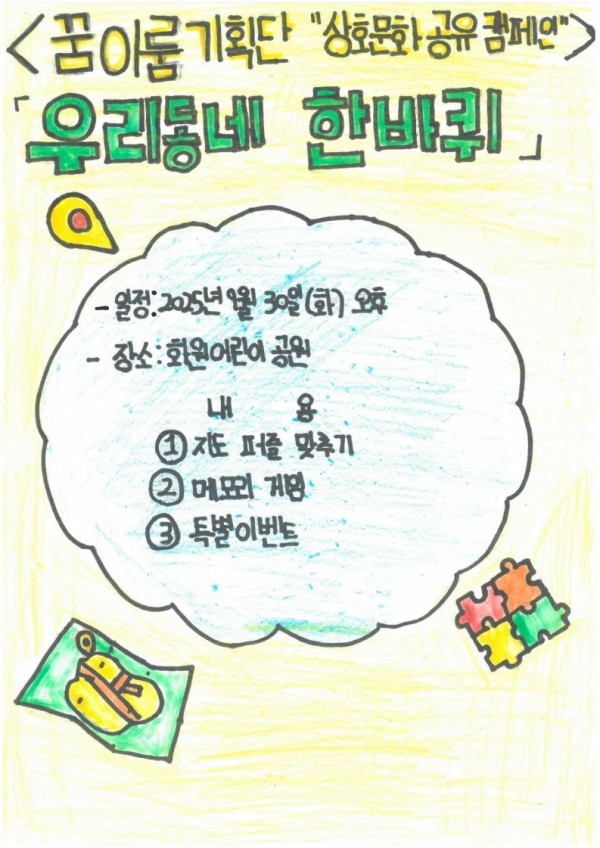 <꿈이룸 기획단 "상호문화 공유 캠페인">
「우리동네 한바퀴」
- 일정: 2025년 9월 30일(화) 오후
- 장소: 화원어린이 공원
내 용
① 지도 퍼즐 맞추기
② 메모리 게임
③ 특별이벤트